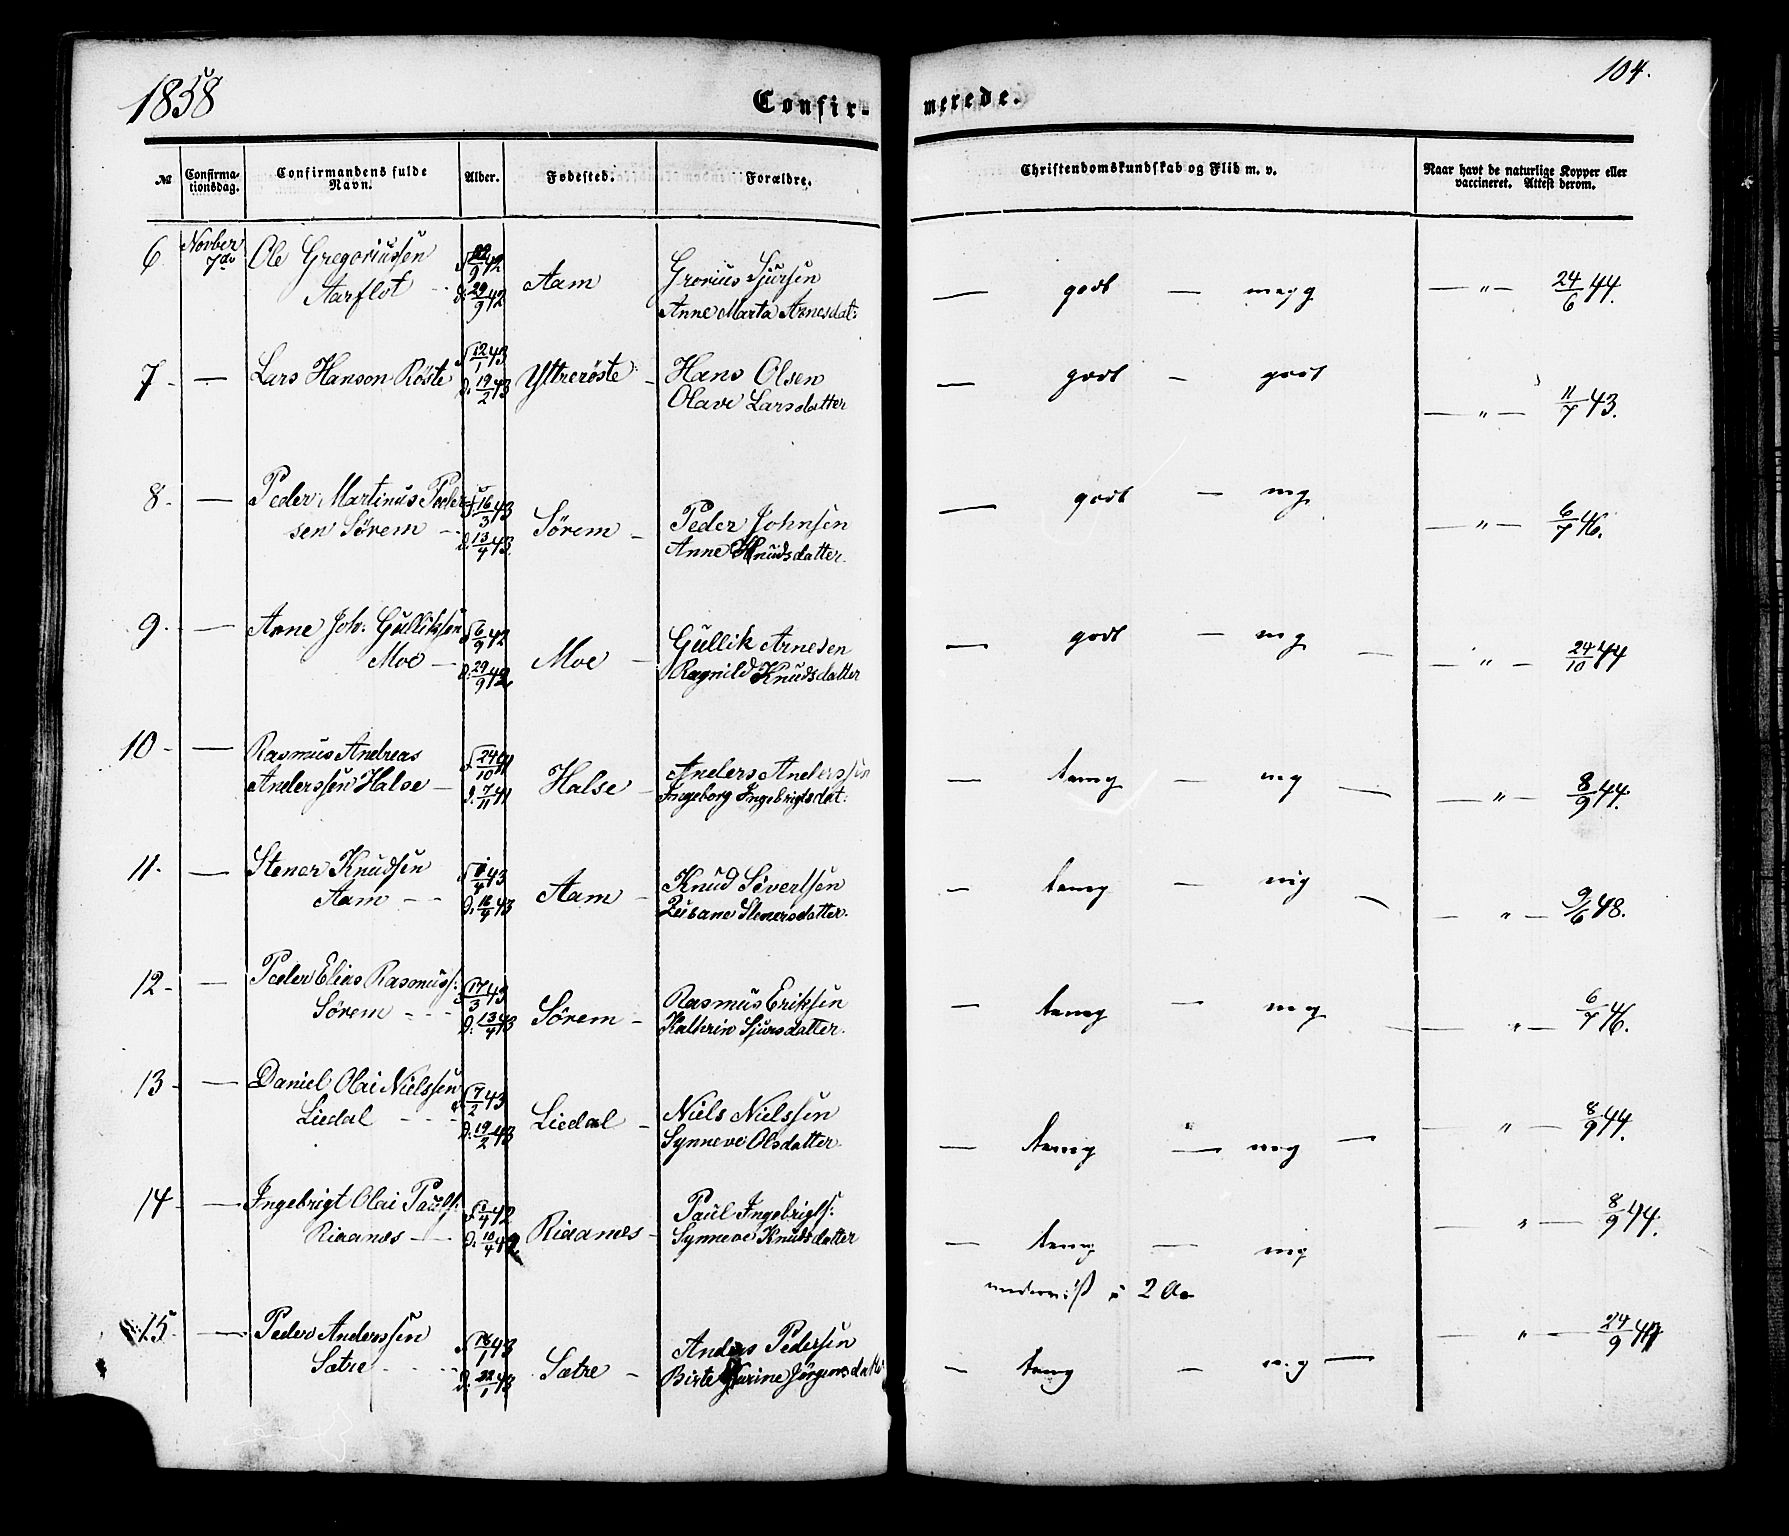 1858
104.
Confir-
merede.
№
Confirma-
tionsdag.
Confirmandens fulde
Navn.
Alder.
Fødested.
Forældre.
Christendomskundskab og Flid m. v.
Naar havt de naturlige Kopper eller
vaccineret. Attest derom.
6 Novber 7de Ole Gregoriussen
Aarflot
22/9 42
d. 29/9 42
Aam
Grorius Sjursen
Anne Marta Arnesdat:
— godt — megg
— " — 24/6 44.
7 - — Lars Hanson Röste
12/1 43
d. 19/2 43
Yttreröste -
Hans Olsen
Olave Larsdatter
— godt — godt
— " — 11/7 43.
8 - — Peder Martinus Peder
sen Sörem -
16/3 43
d. 13/4 43
Sörem -
Peder Johnsen
Anne Knudsdatter.
— godt — mg
— " — 6/7 46.
9. — Arne Joh: Gulliksen
Moe -
6/9 42
d. 29/9 42
Moe -
Gullik Arnesen
Ragnild Knudsdatter
— godt — mg —
— " — 24/10 44
10 - — Rasmus Andreas
Anderssen Halse -
24/10 41
d. 7/11 41
Halse -
Anders Anderssen
Ingeborg Ingebrigtsdat:
— temg — mg —
— " — 8/9 44.
11. — Stener Knudsen
Aam - -
/4 43
d. 16/4 43
Aam -
Knud Sivertsen
Stenersdatter.
— temg — mg —
— " — 9/6 48.
12 - — Peder Elias Rasmuss:
Sörem - - -
17/3 43
d. 13/4 43
Sörem -
Rasmus Eriksen
Katterin Sjursdatter.
— temg — mg —
— " — 6/7 46.
13 - — Daniel Olai Nielssen
Liedal - - -
7/2 43
d. 19/2 43
Liedal -
Niels Nielssen
Synneve Olsdatter.
— temg — mg —
— " — 8/9 44.
14 - — Ingebrigt Olai Pauls:
Riaanæs - -
/4 42
d. 10/4 42
Riaanæs -
Paul Ingebrigts:
Synneve Knudsdatter
— temg — mg
— " — 8/9 44.
underviist i 2 Aar
15 - — Peder Anderssen
Sætre - - - -
16/1 43
d. 22/1 43
Sætre -
Anders Pedersen
Birte Karine Jörgensdatter
— temg — mg —
— " — 24/9